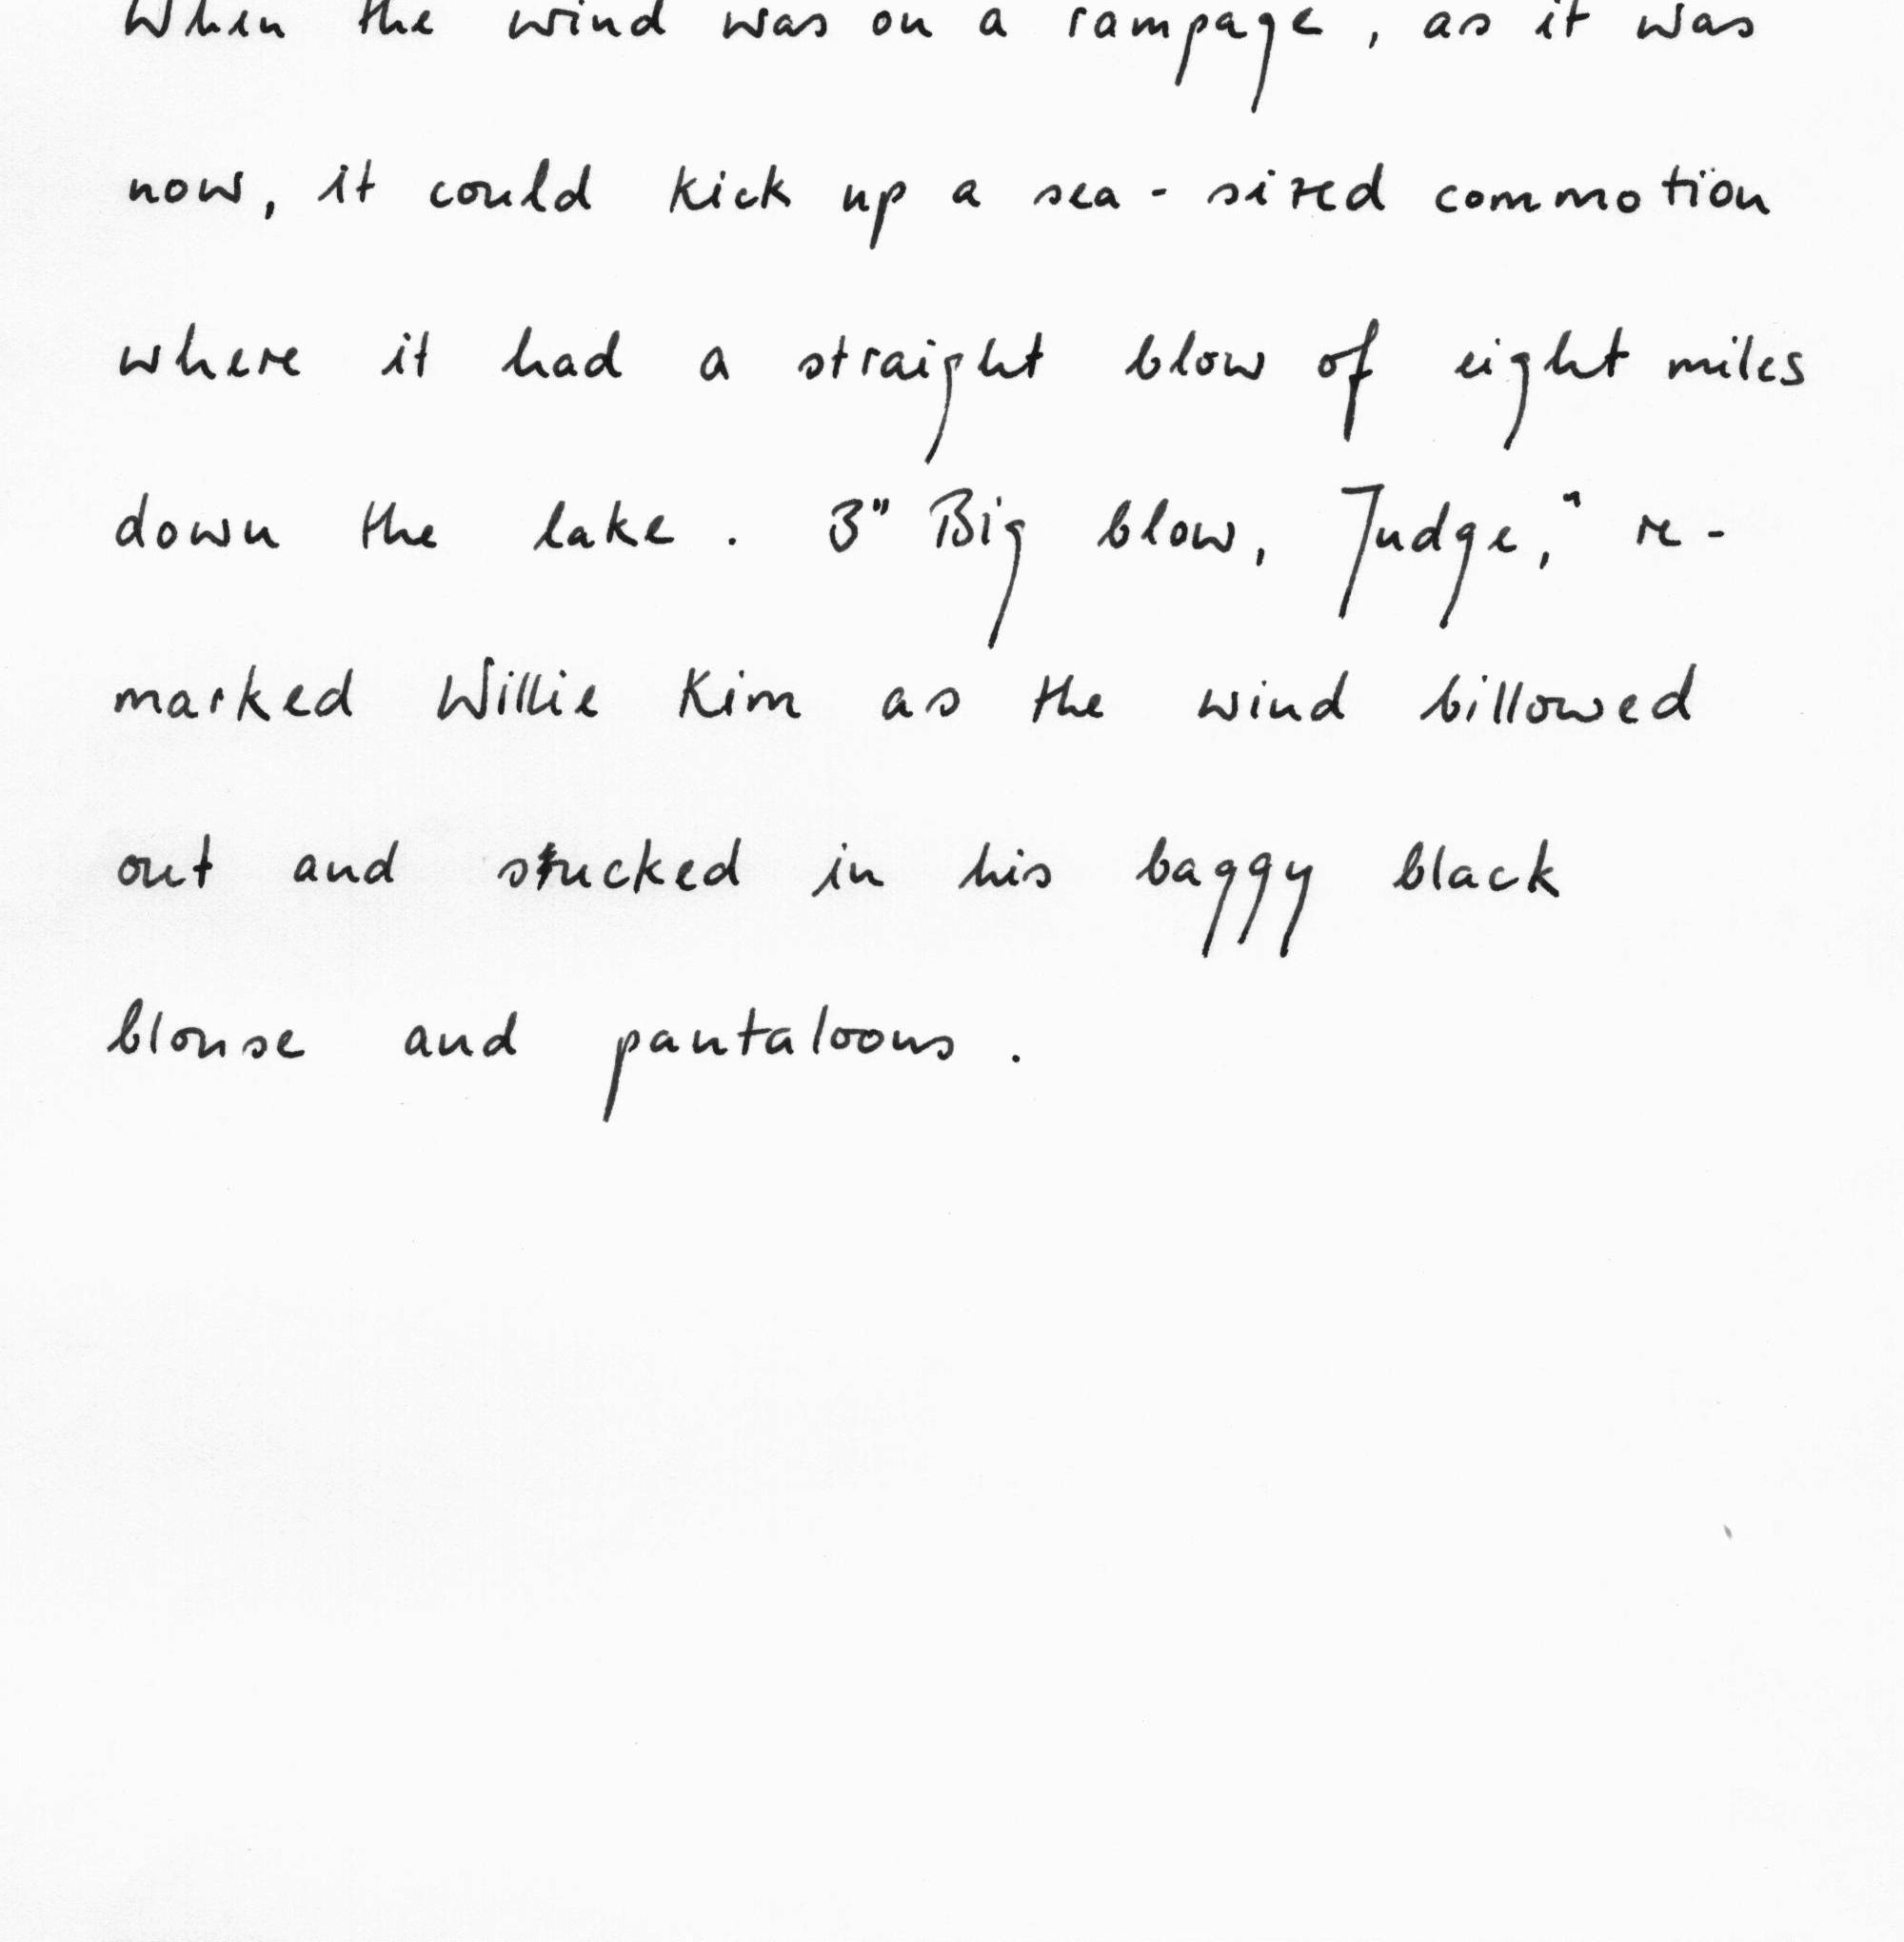 When the wind was on a rampage, as it was
now, it could kick up a sea-sized commotion
where it had a straight blow of eight miles
down the lake. 3" Big blow, Judge," re-
marked Willie Kim as the wind billowed
out and sucked in his baggy black
blouse and pantaloons.